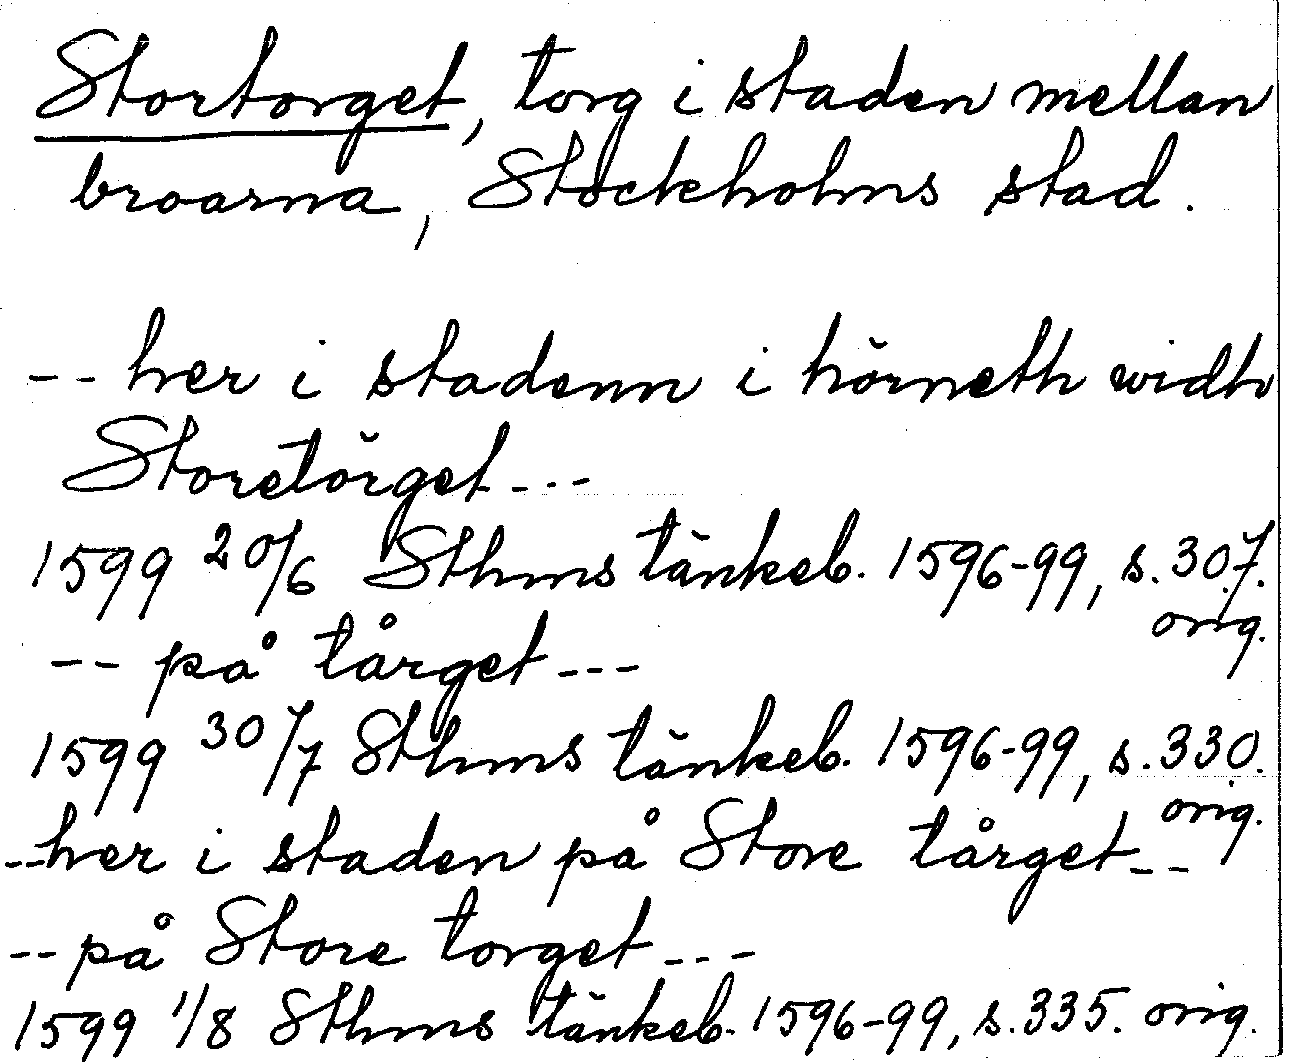 Stortorget, torg i staden mellan
broarna, Stockholms stad.
-- her i stadenn i hörneth widh
Storetörget ---
1599 20/6 Sthms tänkeb. 1596-99, s. 307.
orig.
-- på tårget ---
1599 30/7 Sthms tänkeb. 1596-99, s. 330.
orig.
-- her i staden på Store tårget --
-- på Store torget ---
1599 1/8 Sthms tänkeb. 1596-99, s. 335. orig.